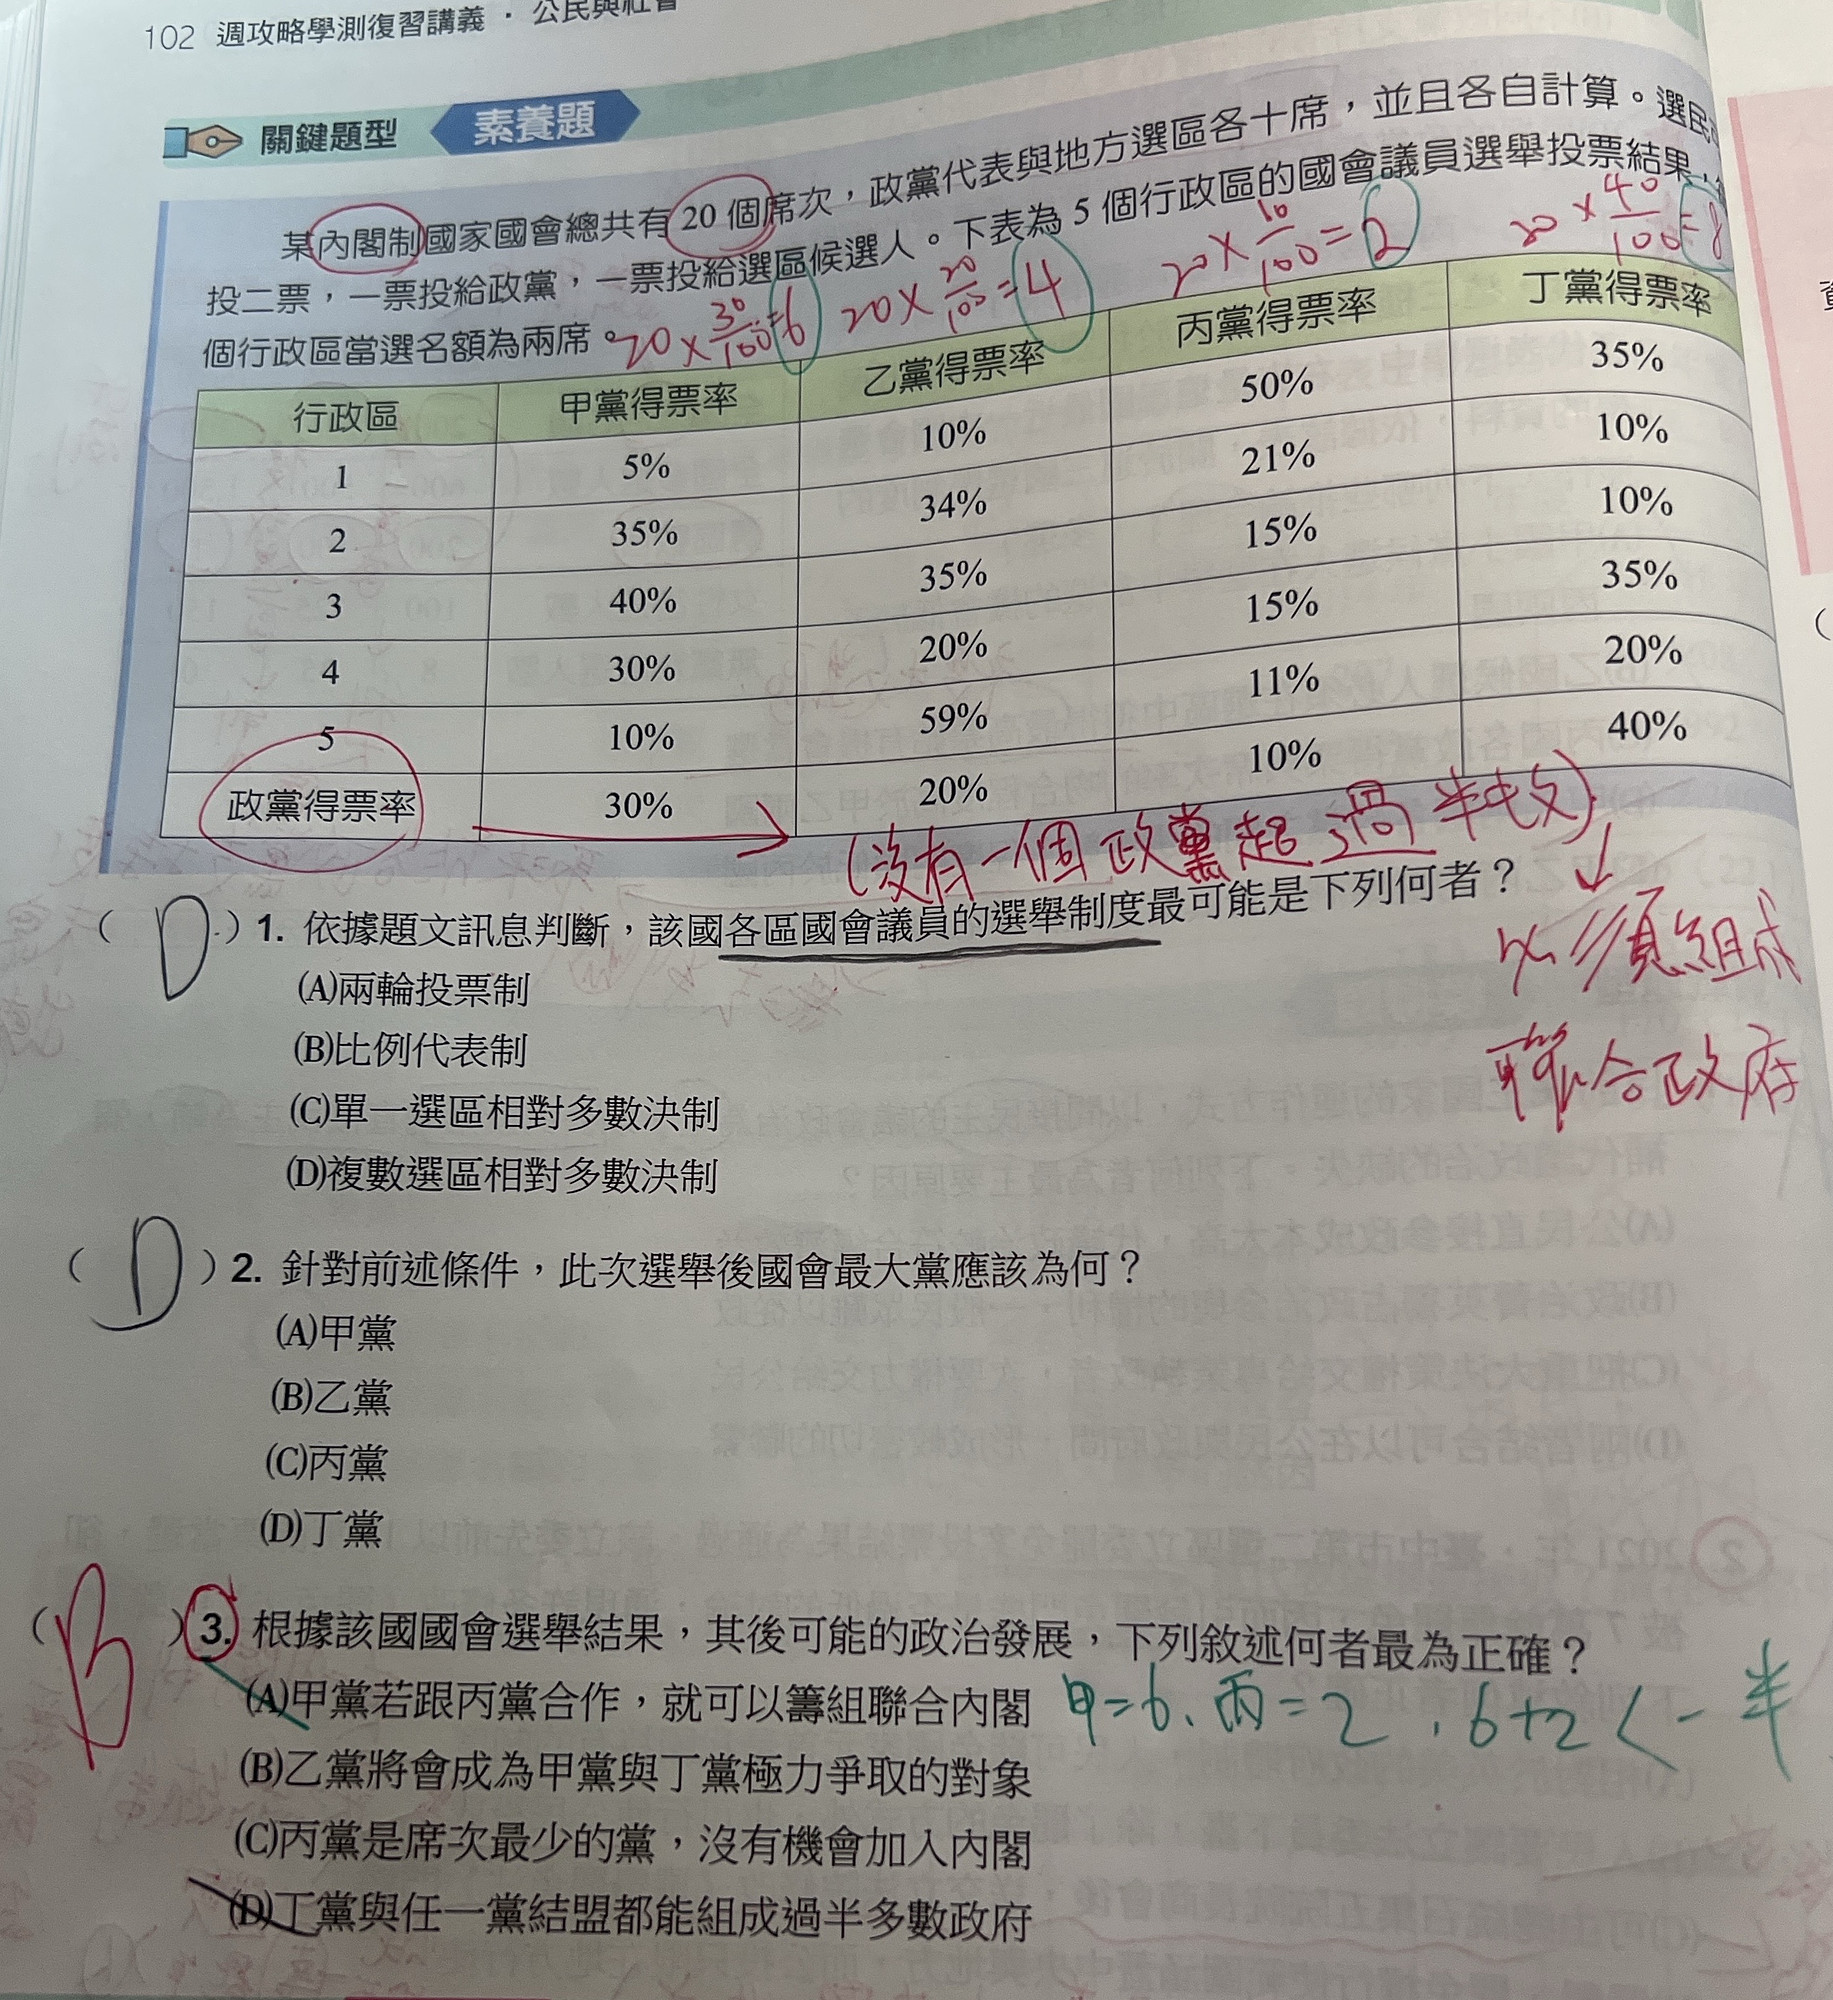 102 週攻略學測復習講義·公民與社會
關鍵題型 素養題
某內閣制國家國會總共有20個席次，政黨代表與地方選區各十席，並且各自計算。選民
投二票，一票投給政黨，一票投給選區候選人。下表為5個行政區的國會議員選舉投票結果，
個行政區當選名額為兩席。
20×30/100=6 20×20/100=4 20×10/100=2 20×40/100=8
行政區 甲黨得票率 乙黨得票率 丙黨得票率 丁黨得票率
1 5% 10% 50% 35%
2 35% 34% 21% 10%
3 40% 35% 15% 10%
4 30% 20% 15% 35%
5 10% 59% 11% 20%
政黨得票率 30% 20% 10% 40%
(沒有一個政黨超過半數)
必須組成
聯合政府
( D ) 1. 依據題文訊息判斷，該國各區國會議員的選舉制度最可能是下列何者？
(A)兩輪投票制
(B)比例代表制
(C)單一選區相對多數決制
(D)複數選區相對多數決制
( D ) 2. 針對前述條件，此次選舉後國會最大黨應該為何？
(A)甲黨
(B)乙黨
(C)丙黨
(D)丁黨
( B ) 3. 根據該國國會選舉結果，其後可能的政治發展，下列敘述何者最為正確？
(A)甲黨若跟丙黨合作，就可以籌組聯合內閣 甲=6、丙=2，6+2<一半
(B)乙黨將會成為甲黨與丁黨極力爭取的對象
(C)丙黨是席次最少的黨，沒有機會加入內閣
(D)丁黨與任一黨結盟都能組成過半多數政府